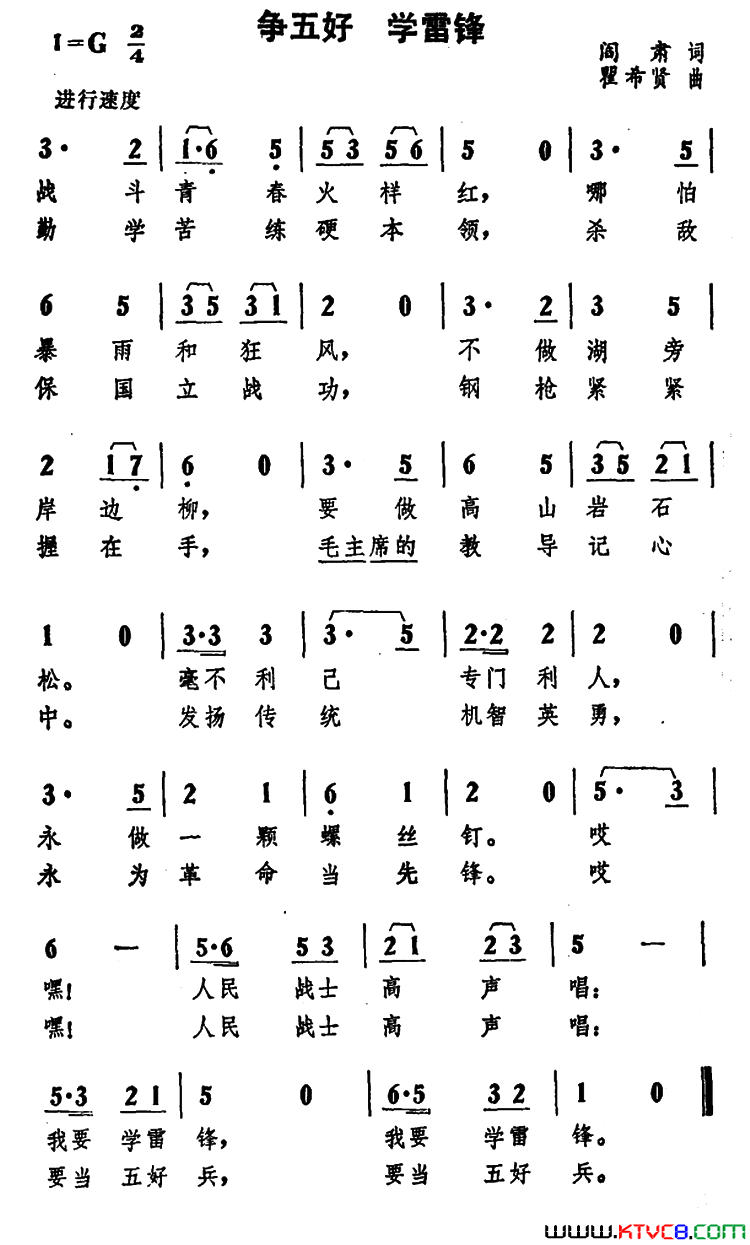 争五好 学雷锋
1=G 2/4
阎肃 词
瞿希贤 曲
进行速度
3· 2 | 1·6 5 | 53 56 | 5 0 | 3· 5 |
战斗青春火样红，哪怕
勤学苦练硬本领，杀敌
6 5 | 35 31 | 2 0 | 3· 2 | 3 5 |
暴雨和狂风，不做湖旁
保国立战功，钢枪紧紧
2 17 | 6 0 | 3· 5 | 6 5 | 35 21 |
岸边柳，要做高山岩石
握在手，毛主席的教导记心
1 0 | 3·3 3 | 3· 5 | 2·2 2 | 2 0 |
松。毫不利己专门利人，
中。发扬传统机智英勇，
3· 5 | 2 1 | 6 1 | 2 0 | 5· 3 |
永做一颗螺丝钉。哎
永为革命当先锋。哎
6 — | 5·6 53 | 21 23 | 5 — |
嘿！人民战士高声唱：
嘿！人民战士高声唱：
5·3 21 | 5 0 | 6·5 32 | 1 0 ‖
我要学雷锋，我要学雷锋。
要当五好兵，要当五好兵。
www.KTVC8.com